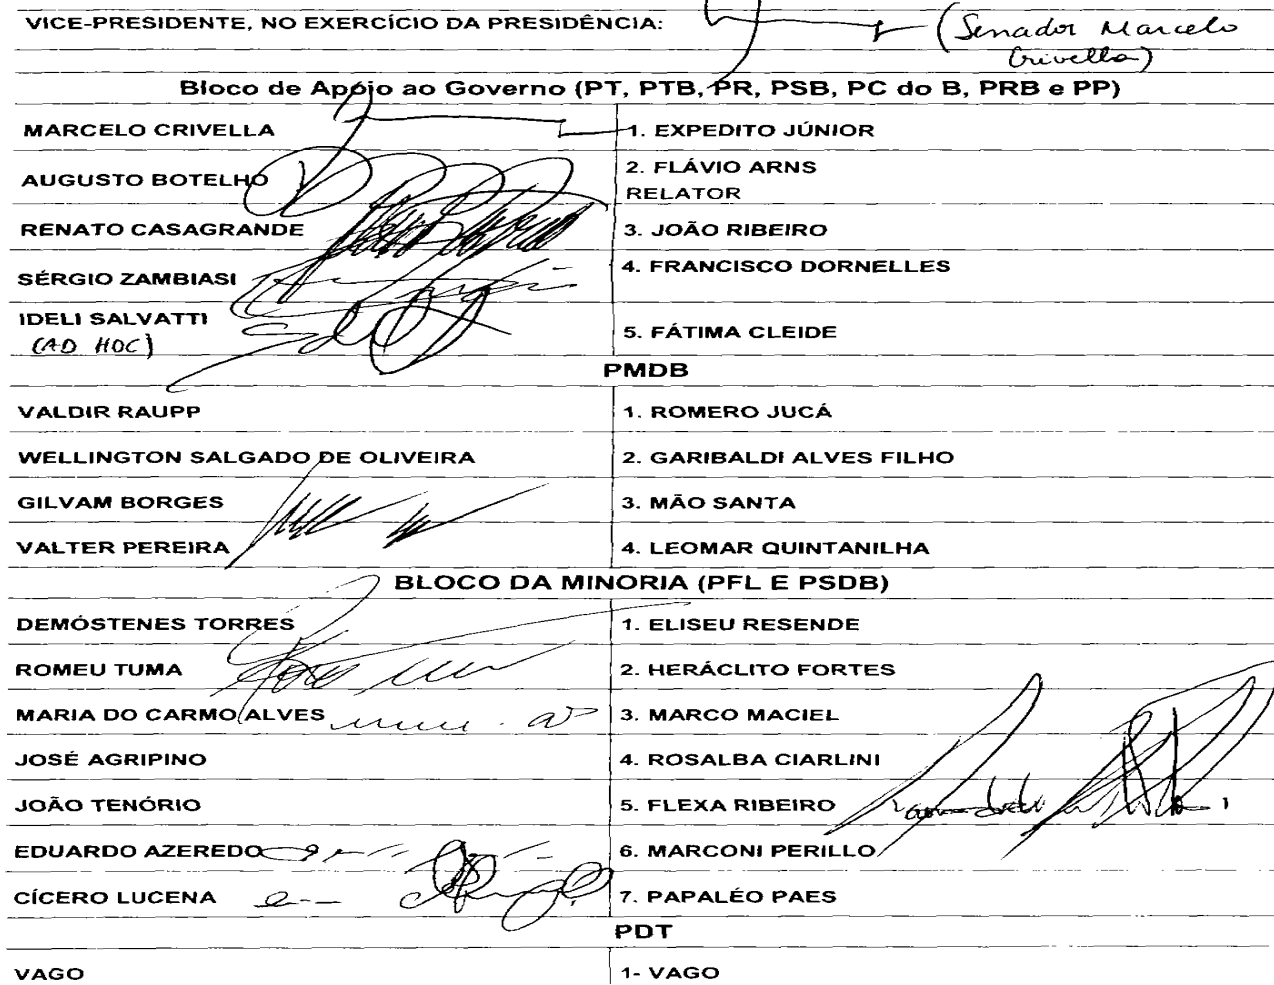 VICE-PRESIDENTE, NO EXERCÍCIO DA PRESIDÊNCIA: (Senador Marcelo
Crivella)
Bloco de Apoio ao Governo (PT, PTB, PR, PSB, PC do B, PRB e PP)
MARCELO CRIVELLA 1. EXPEDITO JÚNIOR
AUGUSTO BOTELHO 2. FLÁVIO ARNS
RELATOR
RENATO CASAGRANDE 3. JOÃO RIBEIRO
SÉRGIO ZAMBIASI 4. FRANCISCO DORNELLES
IDELI SALVATTI 5. FÁTIMA CLEIDE
(AD HOC)
PMDB
VALDIR RAUPP 1. ROMERO JUCÁ
WELLINGTON SALGADO DE OLIVEIRA 2. GARIBALDI ALVES FILHO
GILVAM BORGES 3. MÃO SANTA
VALTER PEREIRA 4. LEOMAR QUINTANILHA
BLOCO DA MINORIA (PFL E PSDB)
DEMÓSTENES TORRES 1. ELISEU RESENDE
ROMEU TUMA 2. HERÁCLITO FORTES
MARIA DO CARMO ALVES 3. MARCO MACIEL
JOSÉ AGRIPINO 4. ROSALBA CIARLINI
JOÃO TENÓRIO 5. FLEXA RIBEIRO
EDUARDO AZEREDO 6. MARCONI PERILLO
CÍCERO LUCENA 7. PAPALÉO PAES
PDT
VAGO 1- VAGO